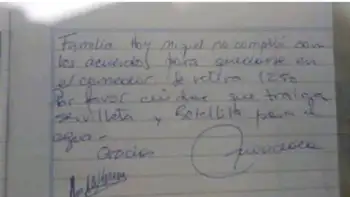 Familia Hoy Miguel no cumplió con
los acuerdos para quedarse en
el comedor. Se retira 12:50
Por favor cuidar que traiga
servilleta y botellita para el
agua.
Gracias